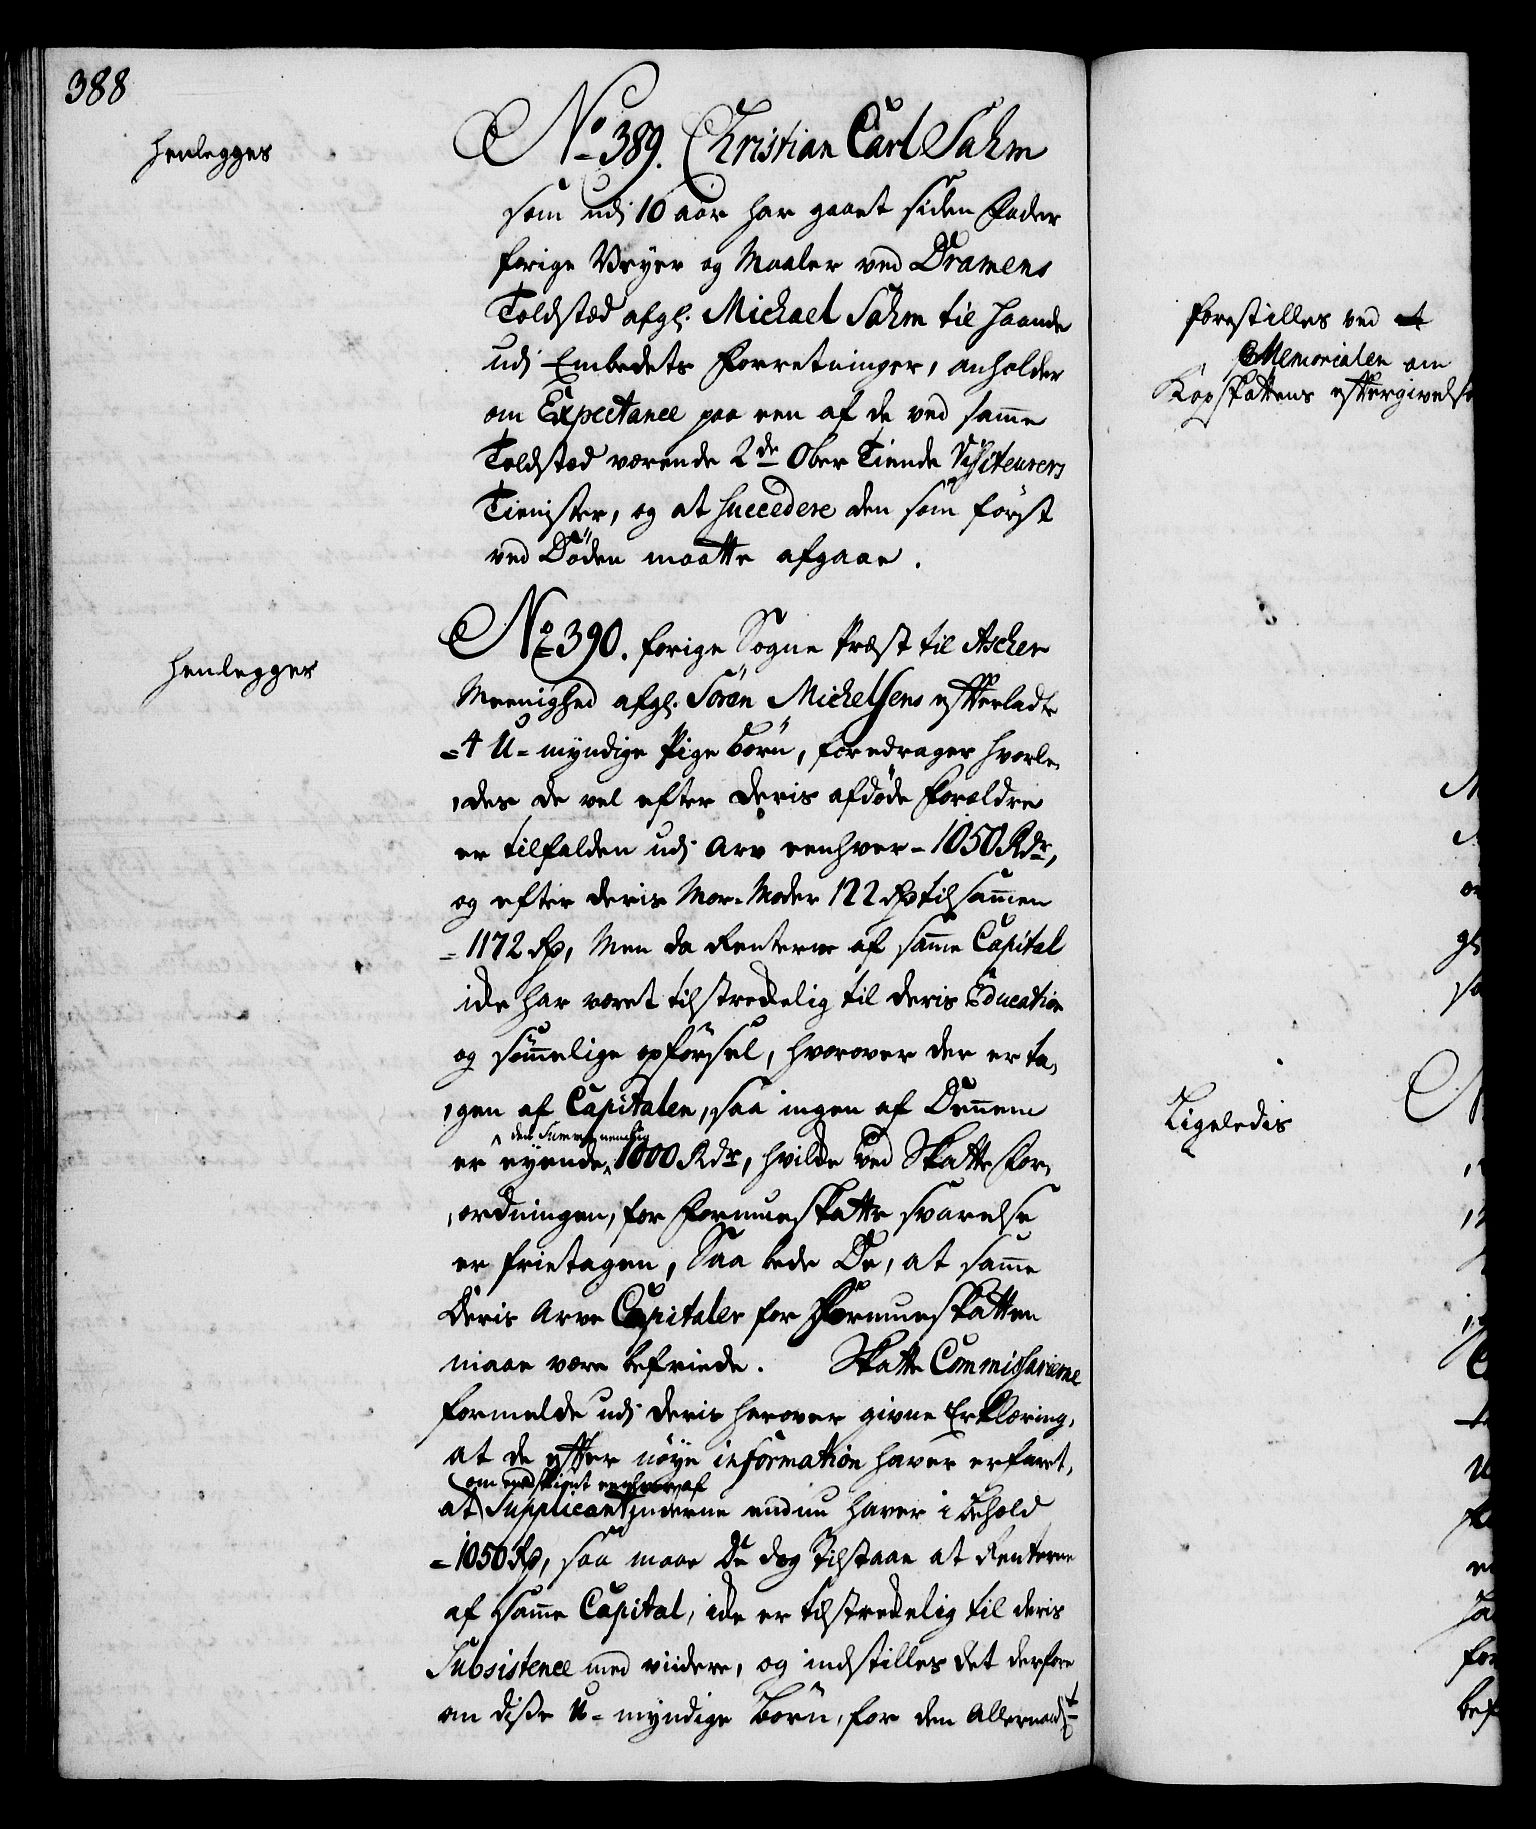 388
henlegges
No 389. Christian Carl Sahm
som udj 10 aar har gaaet siden Fader
forige Veyer og Maaler ved Dramens
Toldsted afg: Michael Sahm til haande
udj Embedets Forretninger, anholder
om Expectance paa een af de ved samme
Toldsted værende 2de Ober Tiende Visiteurers
Tienister, og at succedere den som först
ved Döden maatte afgaae.
henlegges
No 390. forige Sogne Præst til Ascher
Meenighed afg: Sören Michelsens efterladte
=4 U=myndige Pige Börn, foredrager hvorle,
,des de vel efter deris afdöde Forældre
er tilfalden udj Arv eenhver = 1050 Rdr,
og efter deris Mor-Moder 122 Rd tilsammen
=1172 Rd, Men da Renterne af samme Capital
icke har været tilstreckelig til deris Education
og sömmelige opförsel, hvorover der er ta,
,gen af Capitalen, saa ingen af Dennem
den Summa nemlig
er eyende 1000 Rdr, hvilcke ved Skatte For,
,ordningen, for Formueskatts svarelse
er frietagen, Saa bede De, at samme
Deris Arve Capitaler for Formueskatten
maae være befriede. Skatte Commissarierne
formelde udj deris herover givne Erklæring,
at de efter nöye information haver erfaret,
om endskiönt eenhver af
at Supplicantinderne endnu haver i Behold
=1050 Rd, saa maae De dog tilstaae at Renterne
af samme Capital, icke er tilstreckelig til deris
Subsistence med viidere, og indstilles det derfore
om disse U=myndige Börn, for den Allernaadst
forestilles ved
Memorialen om
Kopskattens eftergivelse
Ligeledis